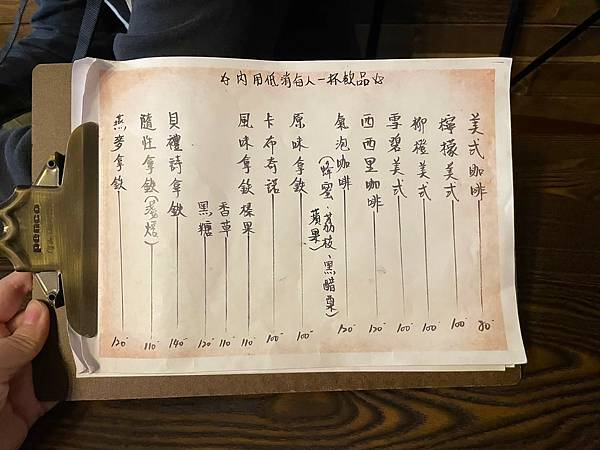 內用低消每人一杯飲品
美式咖啡 80
檸檬美式 100
柳橙美式 100
雪碧美式 100
西西里咖啡 120
氣泡咖啡 120
(蜂蜜、荔枝、黑醋栗、
蘋果)
原味拿鉄 100
卡布奇諾 100
風味拿鉄 榛果 110
香草 110
黑糖 120
貝禮詩拿鉄 140
隨性拿鉄 110
燕麥拿鉄 120
penco